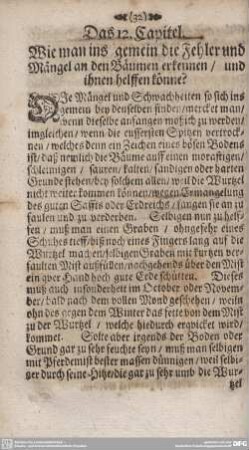 (32)
Das 12. Capitel.
Wie man ins gemein die Fehler und
Mängel an den Bäumen erkennen / und
ihnen helffen könne?
DIe Mängel und Schwachheiten so sich ins
gemein bey denselben findet / mercket man /
wenn dieselbe anfangen mosich zu werden /
imgleichen / wenn die eussersten Spitzen vertrock-
nen / welches denn ein Zeichen eines bösen Bodens
ist / daß nemlich die Bäume auff einen morastigen /
schleimigen / sauren / kalten / sandigen oder harten
Grunde stehen / bey solchem allen / weil die Wurtzel
nicht weiter kommen können / wegen Ermangelung
des guten Saffts oder Erdreichs / fangen sie an zu
faulen und zu verderben. Selbigen nun zu helf-
fen / muß man einen Graben / ohngefehr eines
Schuhes tieff / biß noch eines Fingers lang auf die
Wurtzel machen / selbigen Graben mit kurtzen ver-
faulten Mist außfüllen / nachgehends über den Mist
ein qver Hand hoch gute Erde schütten. Dieses
muß auch insonderheit im October oder Novem-
ber / bald nach dem vollen Mond geschehen / weil
ohn des gegen dem Winter das fette von dem Mist
zu der Wurtzel / welche hiedurch erqvicket wird /
kommet. Solte aber irgends der Boden oder
Grund gar zu sehr feuchte seyn / muß man selbigen
mit Pferdemist bester massen düngen / weil selbi-
ger durch seine Hitze / die gar zu sehr umb die Wur-
tzel